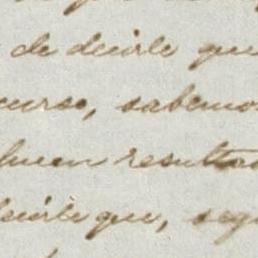 de decirle que
curso, sabemos
buen resultado
decirle que, seg